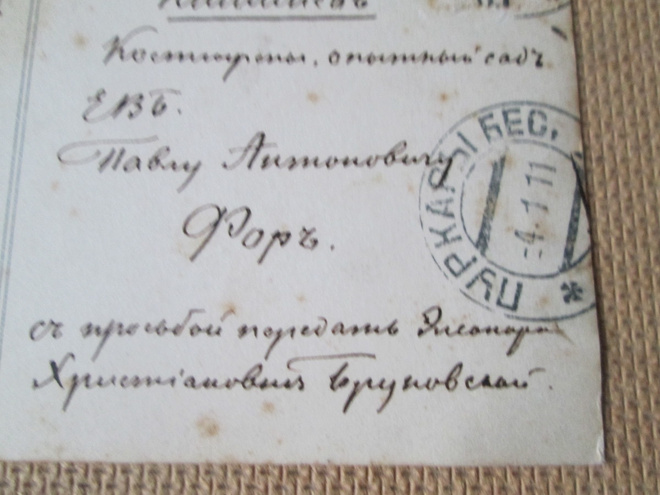 Кишиневъ
Костюжены, опытный садъ
ЕВБ.
Павлу Антоновичу
Форъ.
съ просьбой передать Элеонорѣ
Христіановнѣ Бруновской.
ПУРКАРЫ БЕС.
-4.1.11